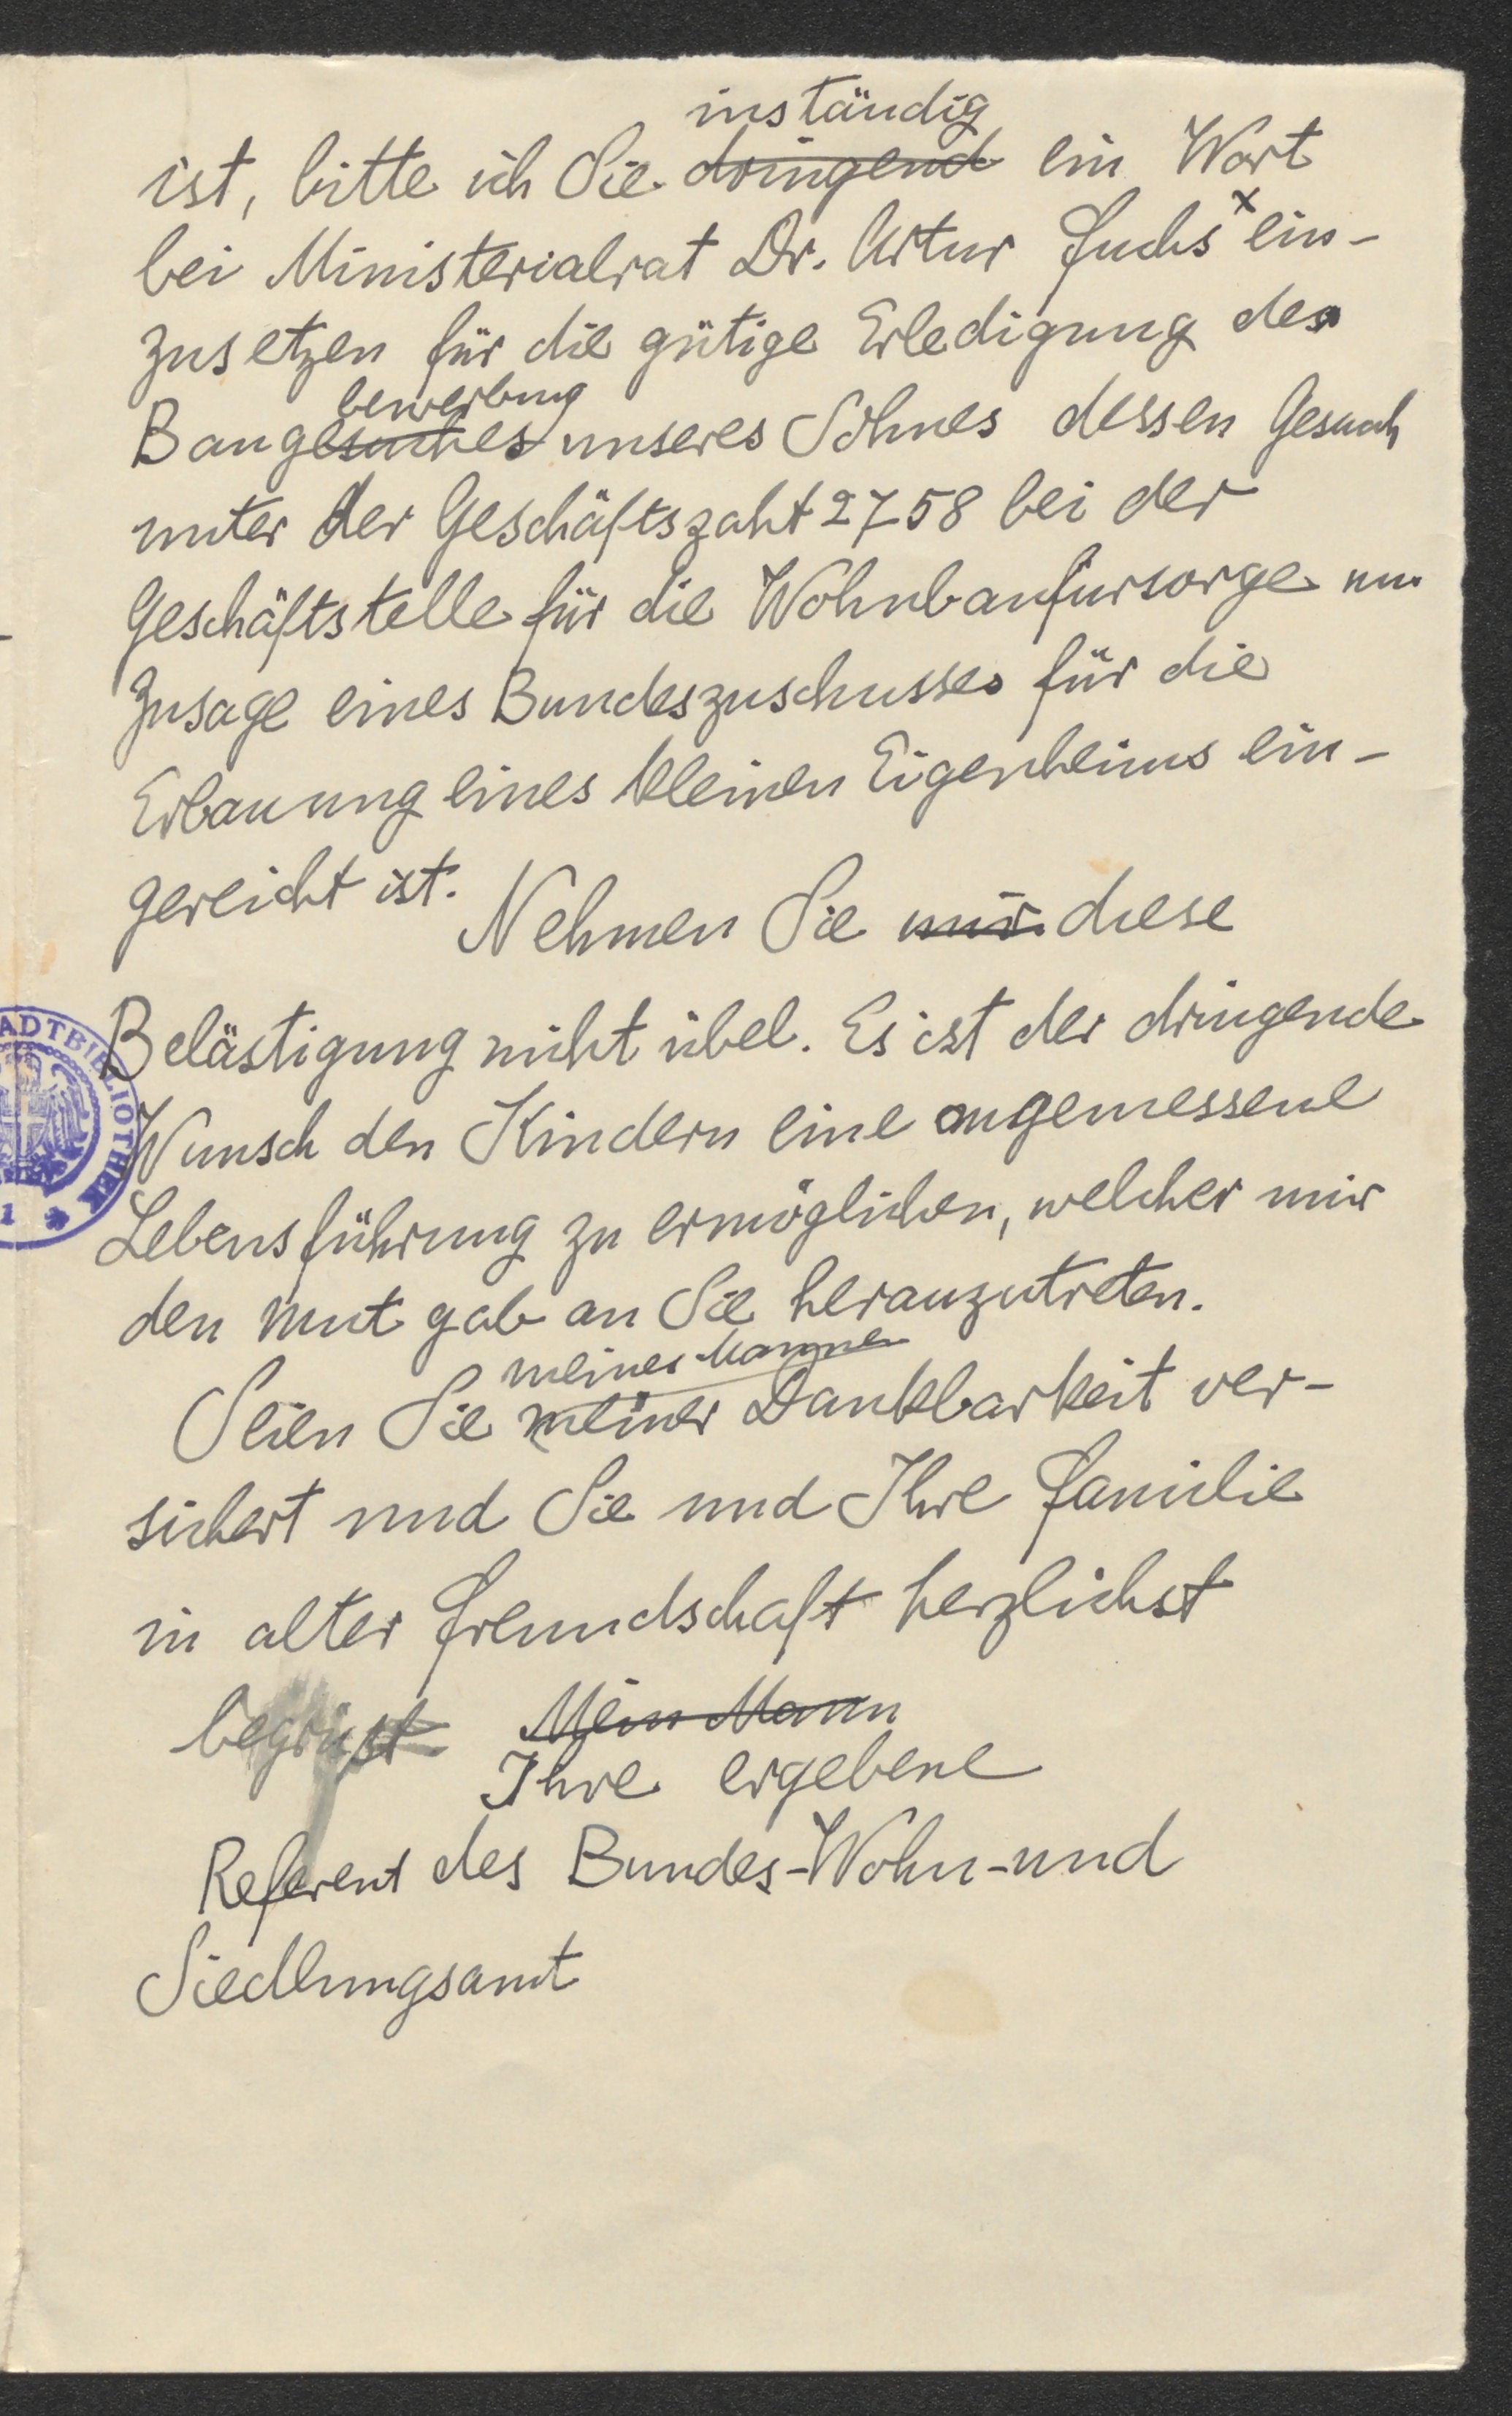 inständig
ist, bitte ich Sie dringend ein Wort
bei Ministerialrat Dr. Artur Fuchs x ein-
zusetzen für die gütige Erledigung des
bewerbung
Baugesuches unseres Sohnes dessen Gesuch
unter der Geschäftszahl 2758 bei der
Geschäftstelle für die Wohnbaufürsorge um
Zusage eines Bundeszuschusses für die
Erbauung eines kleinen Eigenheims ein-
gereicht ist.
Nehmen Sie mir diese
Belästigung nicht übel. Es ist der dringende
Wunsch den Kindern eine angemessene
Lebensführung zu ermöglichen, welcher mir
den Mut gab an Sie heranzutreten.
meines Mannes
Seien Sie meiner Dankbarkeit ver-
sichert und Sie und Ihre Familie
in alter Freundschaft herzlichst
begrüst Mein Mann
Ihre ergebene
Referent des Bundes-Wohn-und
Siedlungsamt
ADTBIBLIOTHEK